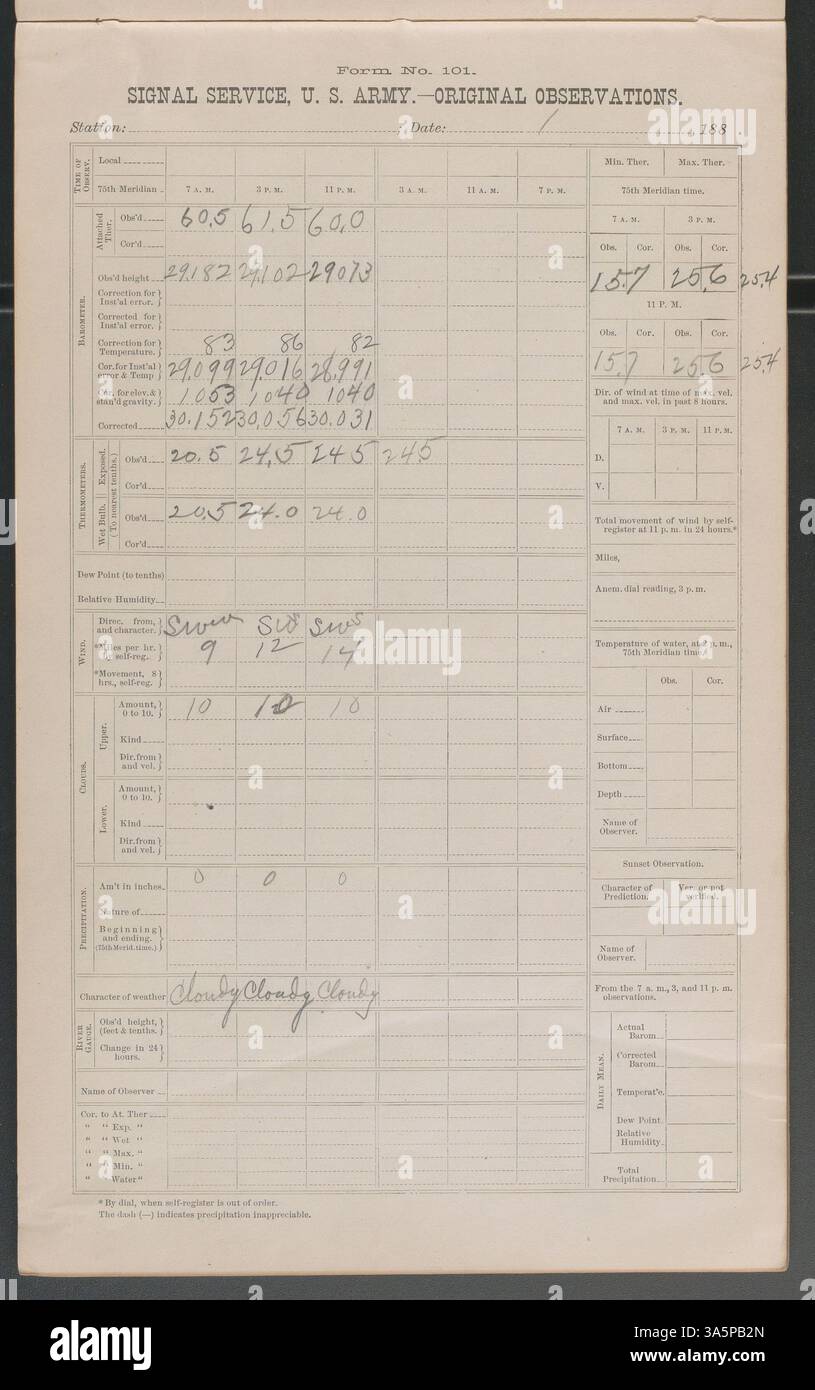 Form No. 101.
SIGNAL SERVICE, U. S. ARMY.—ORIGINAL OBSERVATIONS.
Station: ; Date: 1 , 188 .
TIME OF OBSERV.
Local
75th Meridian 7 A. M. 3 P. M. 11 P. M. 3 A. M. 11 A. M. 7 P. M.
BAROMETER.
Attached Ther.
Obs'd 60.5 61.5 60.0
Cor'd
Obs'd height 29.182 29.102 29073
Correction for Inst'al error.
Corrected for Inst'al error.
Correction for Temperature. 83 86 82
Cor. for Inst'al error & Temp 29.099 29.016 28.991
Cor. for elev. & stan'd gravity. 1053 1040 1040
Corrected 30.152 30.056 30.031
THERMOMETERS.
(To nearest tenths.)
Exposed.
Obs'd 20.5 24.5 245 245
Cor'd
Wet Bulb.
Obs'd 20.5 24.0 24.0
Cor'd
Dew Point (to tenths)
Relative Humidity
WIND.
Direc. from, and character. SW SW
*Miles per hr. by self-reg. 9 12 14
*Movement, 8 hrs., self-reg.
CLOUDS.
Upper.
Amount, 0 to 10. 10 10 10
Kind
Dir. from and vel.
Lower.
Amount, 0 to 10.
Kind
Dir. from and vel.
PRECIPITATION.
Am't in inches 0 0 0
Nature of
Beginning and ending. (75th Merid. time.)
Character of weather Cloudy Cloudy Cloudy
RIVER GAUGE.
Obs'd height, (feet & tenths.)
Change in 24 hours.
Name of Observer
Cor. to At. Ther
" " Exp. "
" " Wet "
" " Max. "
" " Min. "
" " Water "
* By dial, when self-register is out of order.
The dash (—) indicates precipitation inappreciable.
Min. Ther. Max. Ther.
75th Meridian time.
7 A. M. 3 P. M.
Obs. Cor. Obs. Cor.
15.7 25.6 25.4
11 P. M.
Obs. Cor. Obs. Cor.
15.7 25.6 25.4
Dir. of wind at time of max. vel. and max. vel. in past 8 hours.
7 A. M. 3 P. M. 11 P. M.
D.
V.
Total movement of wind by self-register at 11 p. m. in 24 hours.*
Miles,
Anem. dial reading, 3 p. m.
Temperature of water, at 2 p. m., 75th Meridian time.
Obs. Cor.
Air
Surface
Bottom
Depth
Name of Observer.
Sunset Observation.
Character of Prediction. Ver. or not verified.
Name of Observer.
From the 7 a. m., 3, and 11 p. m. observations.
DAILY MEAN.
Actual Barom
Corrected Barom
Temperat'e.
Dew Point
Relative Humidity
Total Precipitation
alamy
a
alamy
Image ID: 3A5PB2N
www.alamy.com